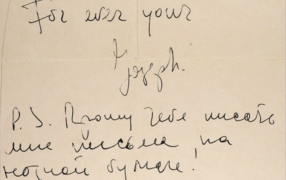 For ever your
Joseph.
P.S. Прошу тебе писать
мне письма на
нотной бумаге!